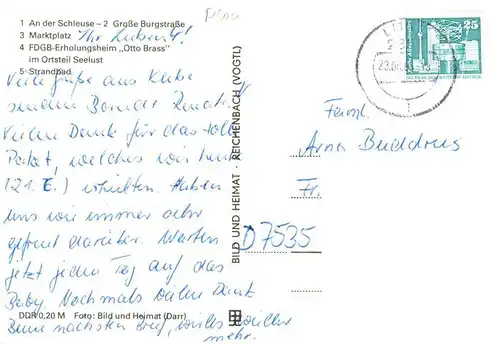 1 An der Schleuse – 2 Große Burgstraße
3 Marktplatz
4 FDGB-Erholungsheim „Otto Brass"
im Ortsteil Seelust
5 Strandbad
Ihr Lieben!
Viele Grüße aus
senden
Vielen Dank für das tolle
Paket, welches wir heute
(21. 6.) erhielten. Haben
uns wie immer sehr
gefreut darüber. Warten
jetzt jeden Tag auf das
Baby. Nochmals vielen Dank
Beim nächsten Brief, wieder
mehr.
DDR 0,20 M Foto: Bild und Heimat (Darr)
BILD UND HEIMAT · REICHENBACH (VOGTL)
25
Faml.
Arno Buddrus
Fr.
D 7535